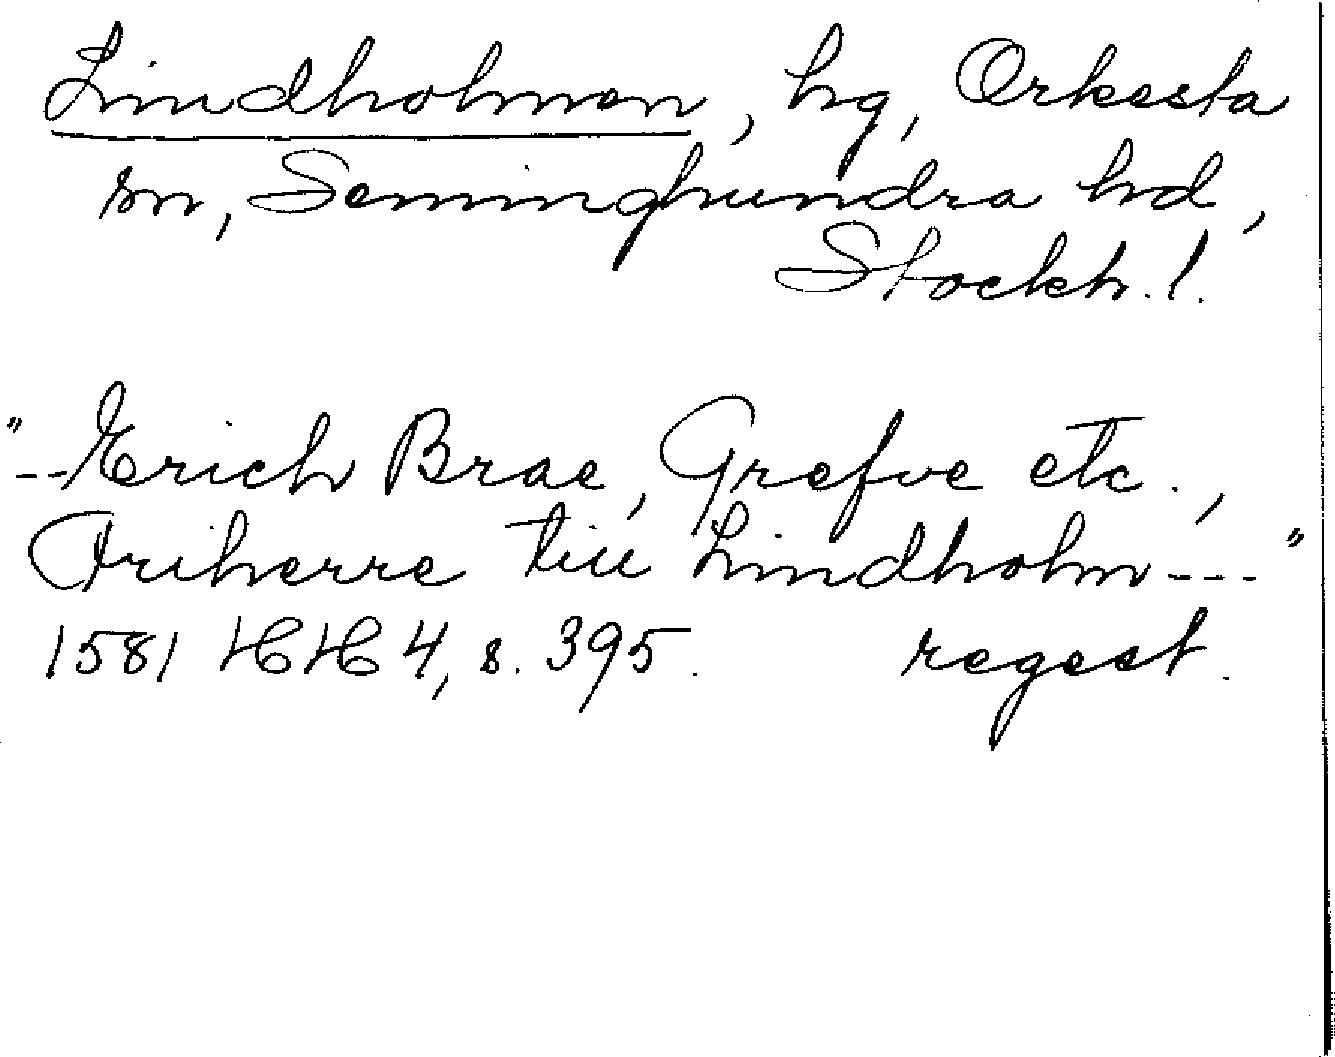 Lindholmen, hg, Orkesta
sn, Seminghundra hd,
Stockh. l.
"--Erich Brae, Grefve etc.,
Friherre till Lindholm---"
1581 HH 4, s. 395. regest.